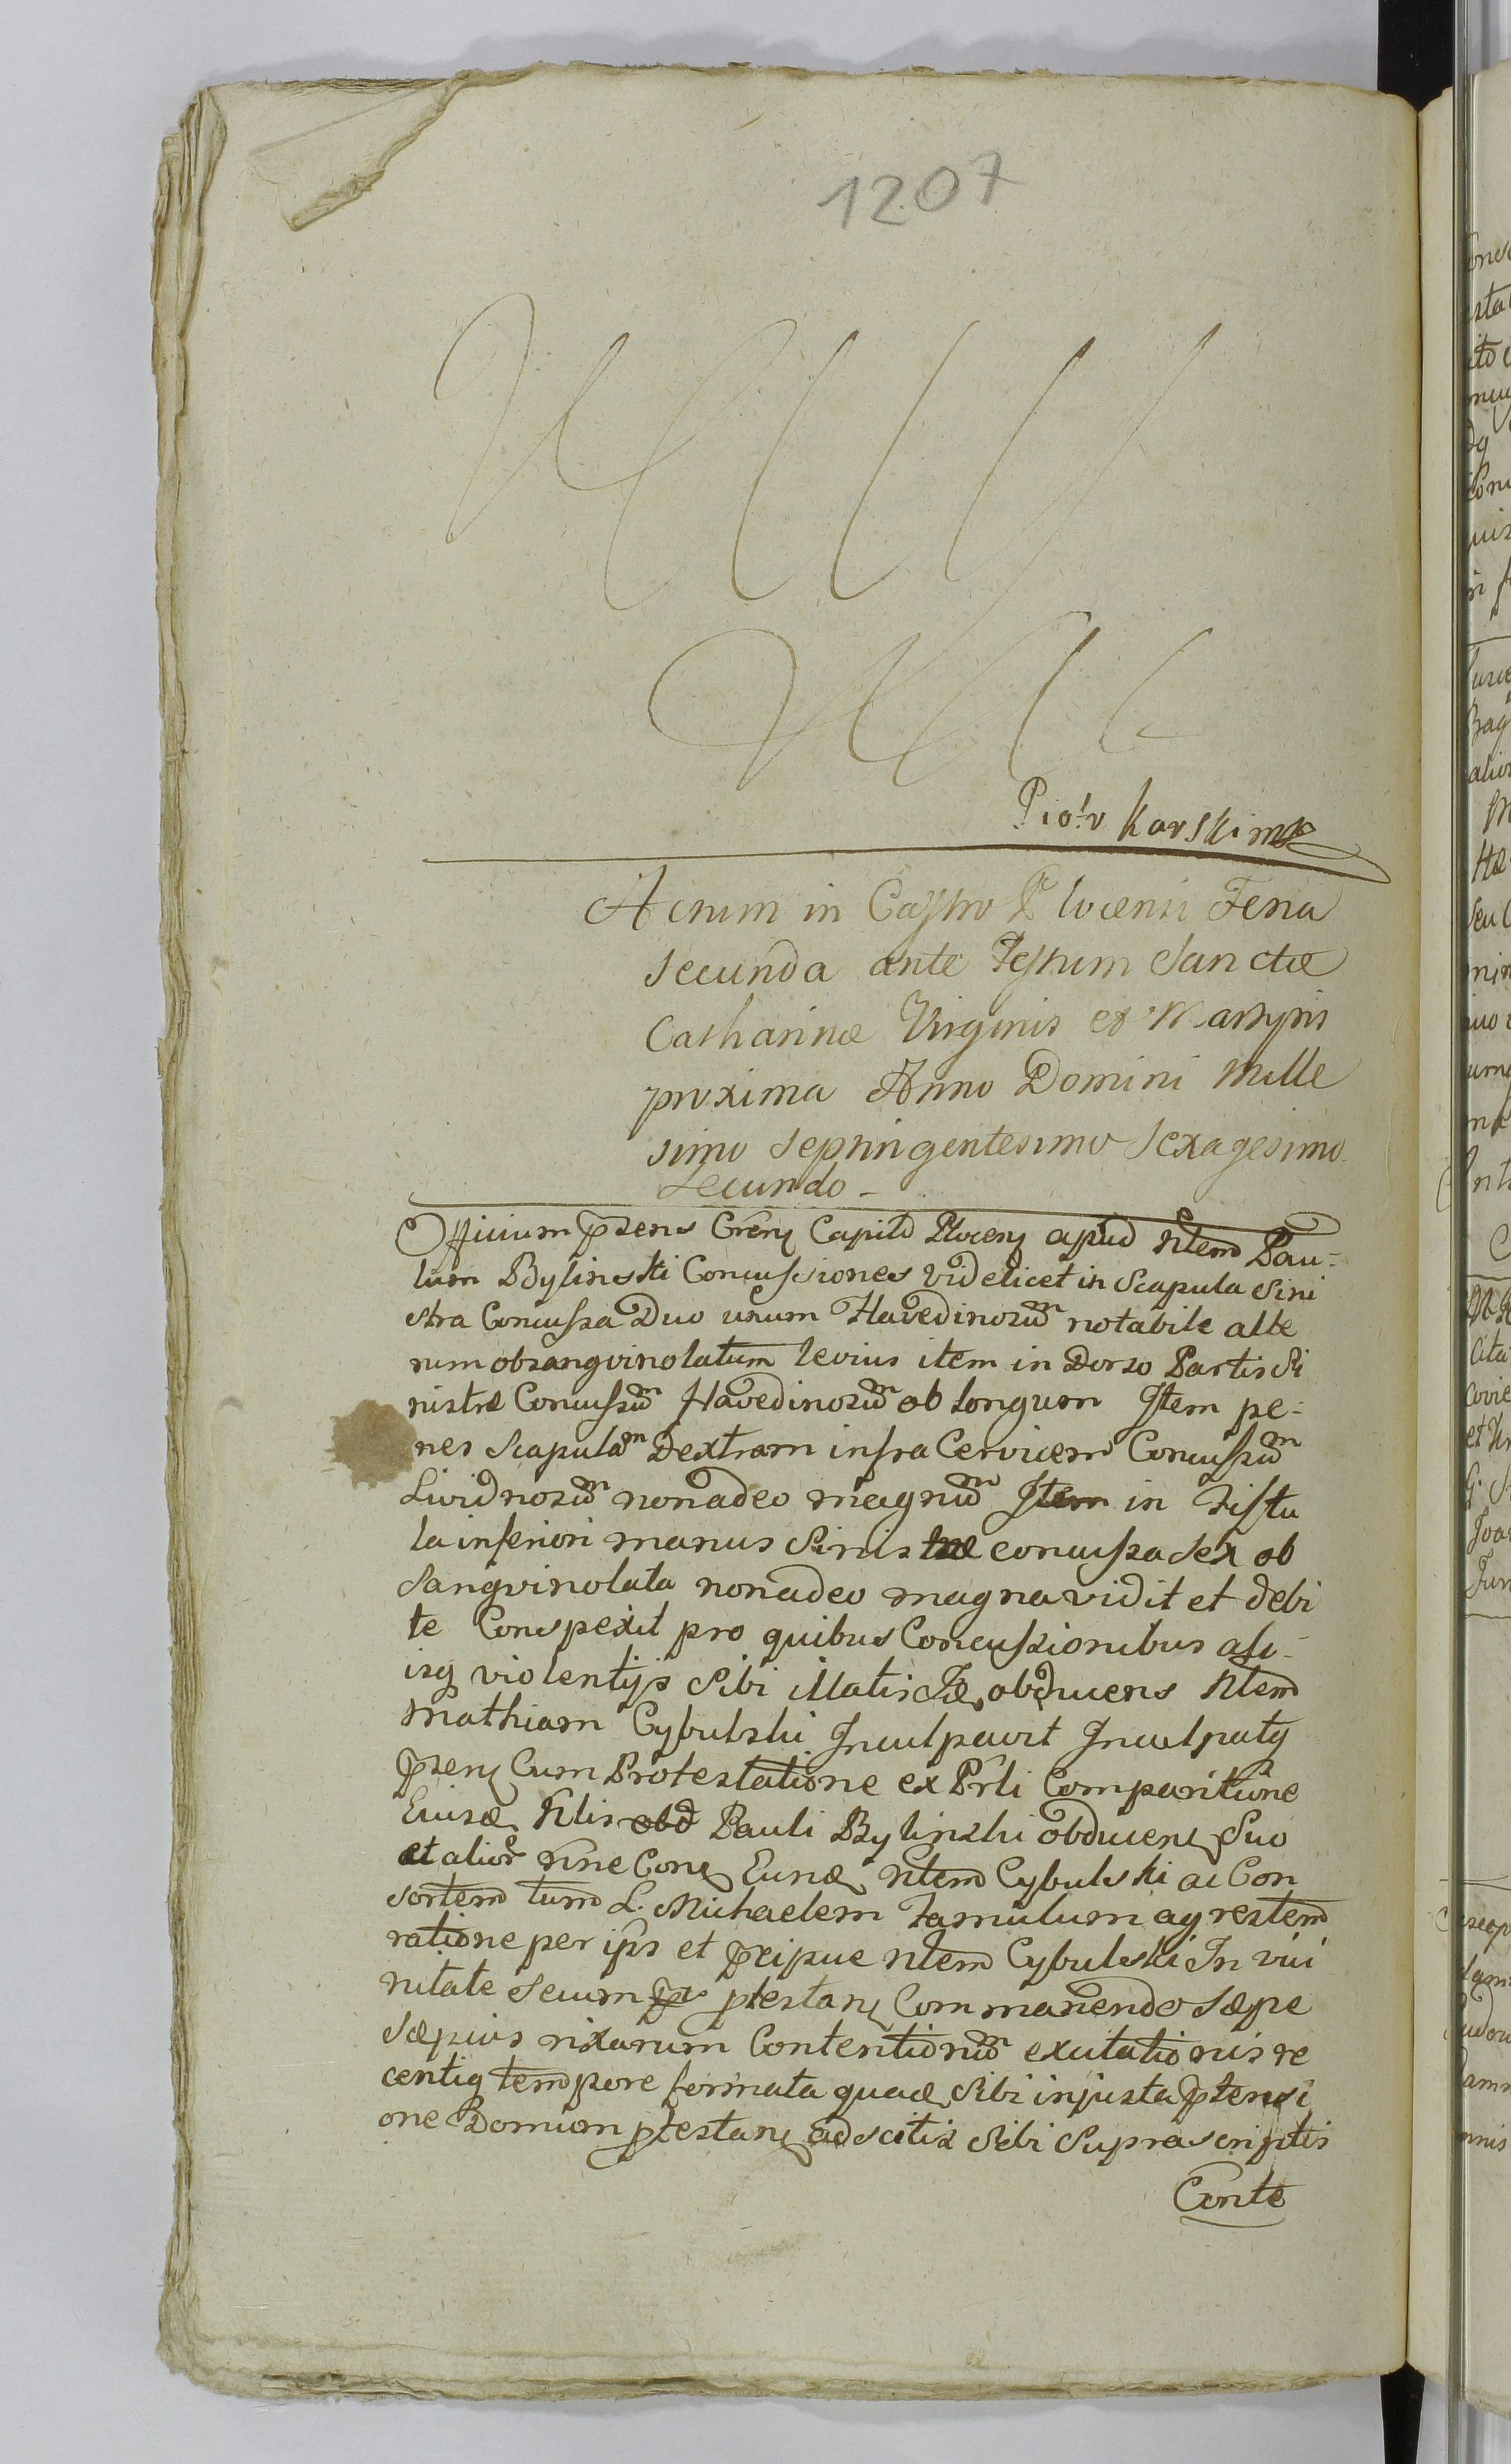 1207
Piotr Karski mp
Actum in Castro Plocensi Feria
secunda ante Festum Sanctæ
Catharinæ Virginis et Martyris
proxima Anno Domini Mille
simo Septingentesimo Sexagesimo
Secundo -
Officium Capitl Plocen apud Ntem Pau-
lum Bylinski Concussiones videlicet in Scapula Sini
stra Concussa Duo unum Flavedinosum notabile alte
rum obsangvinolatum levius item in Dorso Partis Si
nistræ Concussum Flavedinosum oblongum Item pe-
nes Scapulam Dextram infra Cervicem Concussum
Lividnosum nonadeo magnum Item in Fistu
la inferiori manus Sinistræ concussa sex ob
Sangvinolata nonadeo magna vidit et debi
te Conspexit pro quibus Concussionibus ali-
isq violentijs Sibi illatis obducens Ntem
Mathiam Cybulski Inculpavit
Cum Protestatione ex Prli Comparitione
Pauli Bylinski obducen Suo
et alior nīne Ntem Cybulski ac Con
sortem tum L. Michaelem Famulum agrestem
ratione per ipso et Ntem Cybulski In vici
nitate Secum Commanendo Sæpe
Sæpius rixarum Contentionum excitationis re
centiq tempore formata sibi injusta ptensi
one Domum ptestan adscitis Sibi Suprascriptis
Conte